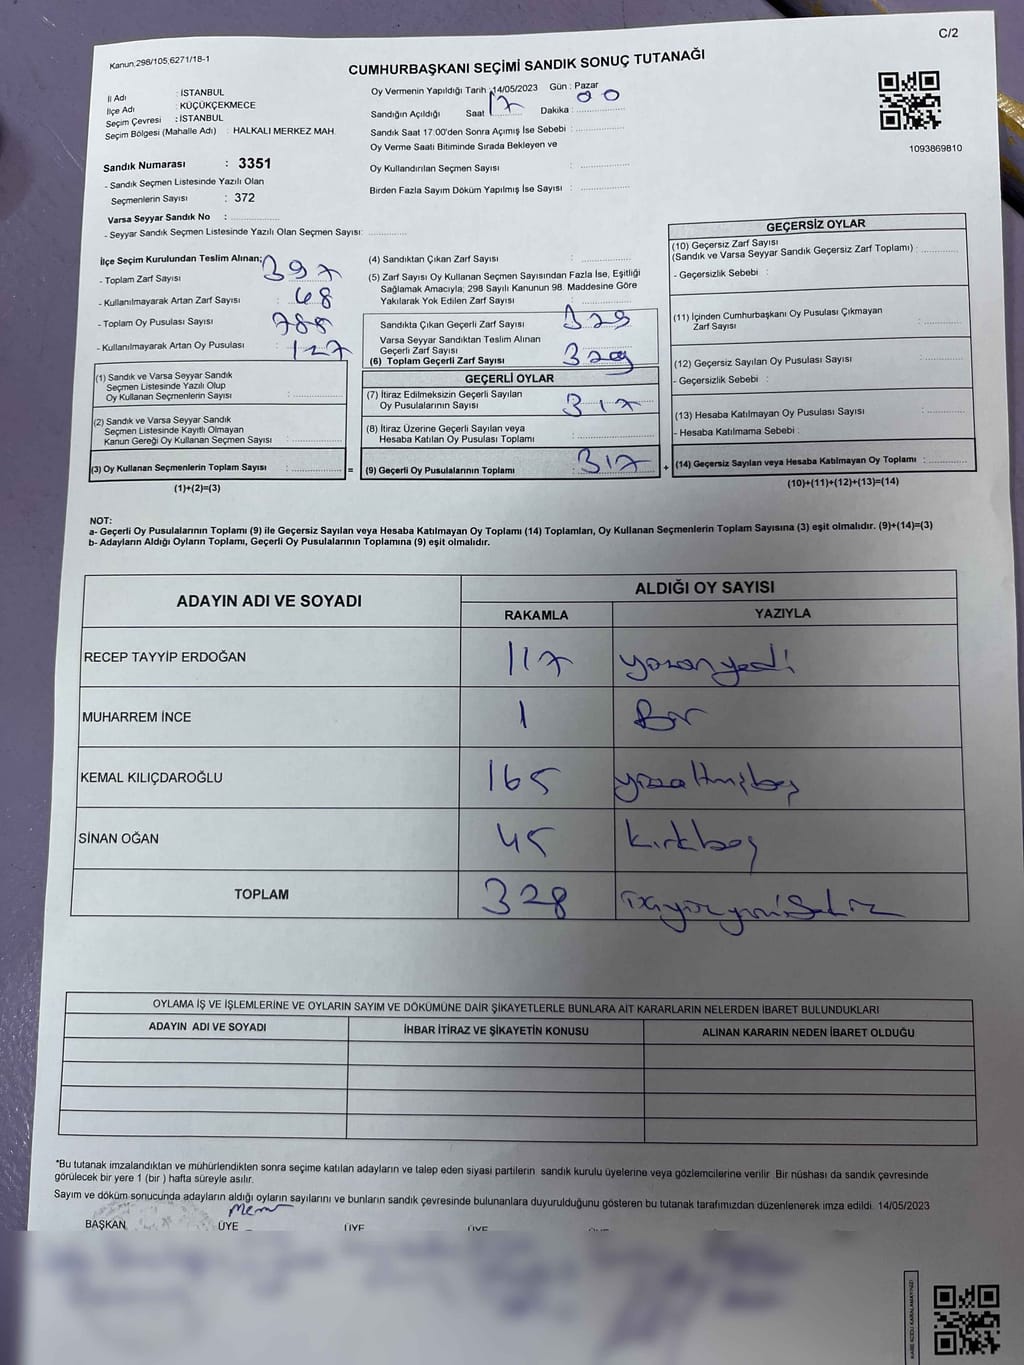 C/2
Kanun,298/105,6271/18-1
CUMHURBAŞKANI SEÇİMİ SANDIK SONUÇ TUTANAĞI
İl Adı : İSTANBUL
İlçe Adı : KÜÇÜKÇEKMECE
Seçim Çevresi : İSTANBUL
Seçim Bölgesi (Mahalle Adı) : HALKALI MERKEZ MAH.
Sandık Numarası : 3351
- Sandık Seçmen Listesinde Yazılı Olan
Seçmenlerin Sayısı : 372
Varsa Seyyar Sandık No :
- Seyyar Sandık Seçmen Listesinde Yazılı Olan Seçmen Sayısı:
Oy Vermenin Yapıldığı Tarih :14/05/2023 Gün : Pazar
Sandığın Açıldığı Saat : 17 Dakika : 00
Sandık Saat 17:00'den Sonra Açımış İse Sebebi :
Oy Verme Saati Bitiminde Sırada Bekleyen ve
Oy Kullandırılan Seçmen Sayısı :
Birden Fazla Sayım Döküm Yapılmış İse Sayısı :
1093869810
İlçe Seçim Kurulundan Teslim Alınan;
- Toplam Zarf Sayısı : 397
- Kullanılmayarak Artan Zarf Sayısı : 68
- Toplam Oy Pusulası Sayısı : 788
- Kullanılmayarak Artan Oy Pusulası : 127
(1) Sandık ve Varsa Seyyar Sandık
Seçmen Listesinde Yazılı Olup
Oy Kullanan Seçmenlerin Sayısı :
(2) Sandık ve Varsa Seyyar Sandık
Seçmen Listesinde Kayıtlı Olmayan
Kanun Gereği Oy Kullanan Seçmen Sayısı :
(3) Oy Kullanan Seçmenlerin Toplam Sayısı : =
(1)+(2)=(3)
(4) Sandıktan Çıkan Zarf Sayısı :
(5) Zarf Sayısı Oy Kullanan Seçmen Sayısından Fazla İse, Eşitliği
Sağlamak Amacıyla; 298 Sayılı Kanunun 98. Maddesine Göre
Yakılarak Yok Edilen Zarf Sayısı :
Sandıkta Çıkan Geçerli Zarf Sayısı : 329
Varsa Seyyar Sandıktan Teslim Alınan
Geçerli Zarf Sayısı :
(6) Toplam Geçerli Zarf Sayısı : 329
GEÇERLİ OYLAR
(7) İtiraz Edilmeksizin Geçerli Sayılan
Oy Pusulalarının Sayısı : 317
(8) İtiraz Üzerine Geçerli Sayılan veya
Hesaba Katılan Oy Pusulası Toplamı :
(9) Geçerli Oy Pusulalarının Toplamı : 317 +
GEÇERSİZ OYLAR
(10) Geçersiz Zarf Sayısı
(Sandık ve Varsa Seyyar Sandık Geçersiz Zarf Toplamı) :
- Geçersizlik Sebebi :
(11) İçinden Cumhurbaşkanı Oy Pusulası Çıkmayan
Zarf Sayısı :
(12) Geçersiz Sayılan Oy Pusulası Sayısı :
- Geçersizlik Sebebi :
(13) Hesaba Katılmayan Oy Pusulası Sayısı :
- Hesaba Katılmama Sebebi :
(14) Geçersiz Sayılan veya Hesaba Katılmayan Oy Toplamı :
(10)+(11)+(12)+(13)=(14)
NOT:
a- Geçerli Oy Pusulalarının Toplamı (9) ile Geçersiz Sayılan veya Hesaba Katılmayan Oy Toplamı (14) Toplamları, Oy Kullanan Seçmenlerin Toplam Sayısına (3) eşit olmalıdır. (9)+(14)=(3)
b- Adayların Aldığı Oyların Toplamı, Geçerli Oy Pusulalarının Toplamına (9) eşit olmalıdır.
ADAYIN ADI VE SOYADI
ALDIĞI OY SAYISI
RAKAMLA YAZIYLA
RECEP TAYYİP ERDOĞAN 117 yüzonyedi
MUHARREM İNCE 1 Bir
KEMAL KILIÇDAROĞLU 165 yüzaltmışbeş
SİNAN OĞAN 45 kırkbeş
TOPLAM 328
OYLAMA İŞ VE İŞLEMLERİNE VE OYLARIN SAYIM VE DÖKÜMÜNE DAİR ŞİKAYETLERLE BUNLARA AİT KARARLARIN NELERDEN İBARET BULUNDUKLARI
ADAYIN ADI VE SOYADI İHBAR İTİRAZ VE ŞİKAYETİN KONUSU ALINAN KARARIN NEDEN İBARET OLDUĞU
*Bu tutanak imzalandıktan ve mühürlendikten sonra seçime katılan adayların ve talep eden siyasi partilerin sandık kurulu üyelerine veya gözlemcilerine verilir. Bir nüshası da sandık çevresinde
görülecek bir yere 1 (bir ) hafta süreyle asılır.
Sayım ve döküm sonucunda adayların aldığı oyların sayılarını ve bunların sandık çevresinde bulunanlara duyurulduğunu gösteren bu tutanak tarafımızdan düzenlenerek imza edildi. 14/05/2023
BAŞKAN ÜYE ÜYE ÜYE